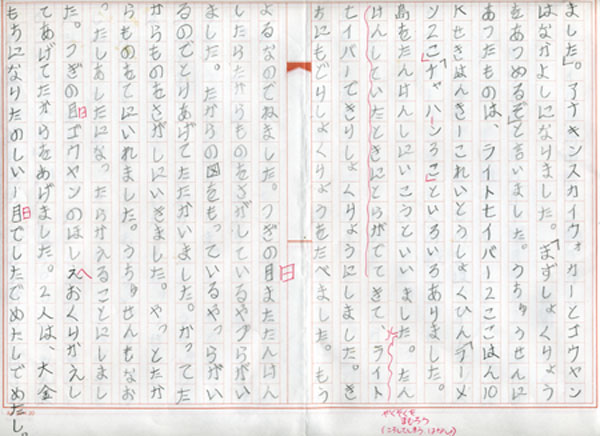 ました」。アナキンスカイウォーガーとゴウヤン
はなかよしになりました。「まずしょくりょう
をあつめるぞと言いました。うちゅうせんに
あったものは、ライトセイバー2こごはん10
Kせきはんきーこれいとうしょくひん「ラーメ
ン2こ」「チャーハン3こ」といろいろありました。
島をたんけんしにいこうといいました。たん
けんしていたときにとらがでてきて、ライト
セイバーできりしょくりょうにしました。き
ちにもどりしょくりょうをたべました。もう
よるなのでねました。つぎの目またたんけん
日
したらたからものをさがしているやつらがい
ました。だからの図をもっているやつらがい
るのでとりあげてたたかいました。かってた
からものをさがしにいきました。やっとたか
らものをてにいれました。うちゅせんもなお
ったしあしたになったらかえることにしまし
た。つぎの目ゴウヤンのほしえおくりかえし
日
へ
てあげてたからをあげました。2人は、大金
もちになりたのしい一目でしたでめたしでめたし。
日
やくそくを
まもろう